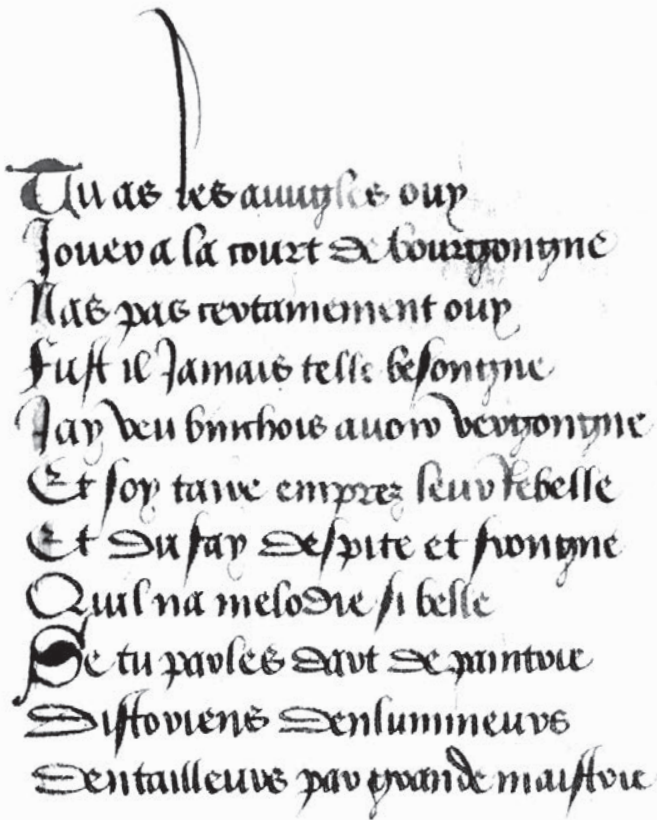 Tu as les avugles ouy
Jouer a la court de bourgongne
Nas pas certainement ouy
Fust il Jamais telle besongne
Jay veu binchois avoir vergongne
Et soy taire emprez leur rebelle
Et du fay despite et frongne
Quil na melodie si belle
Se tu parles dart de paintrie
Distoriens denlumineurs
Dentailleurs par grande maistrie